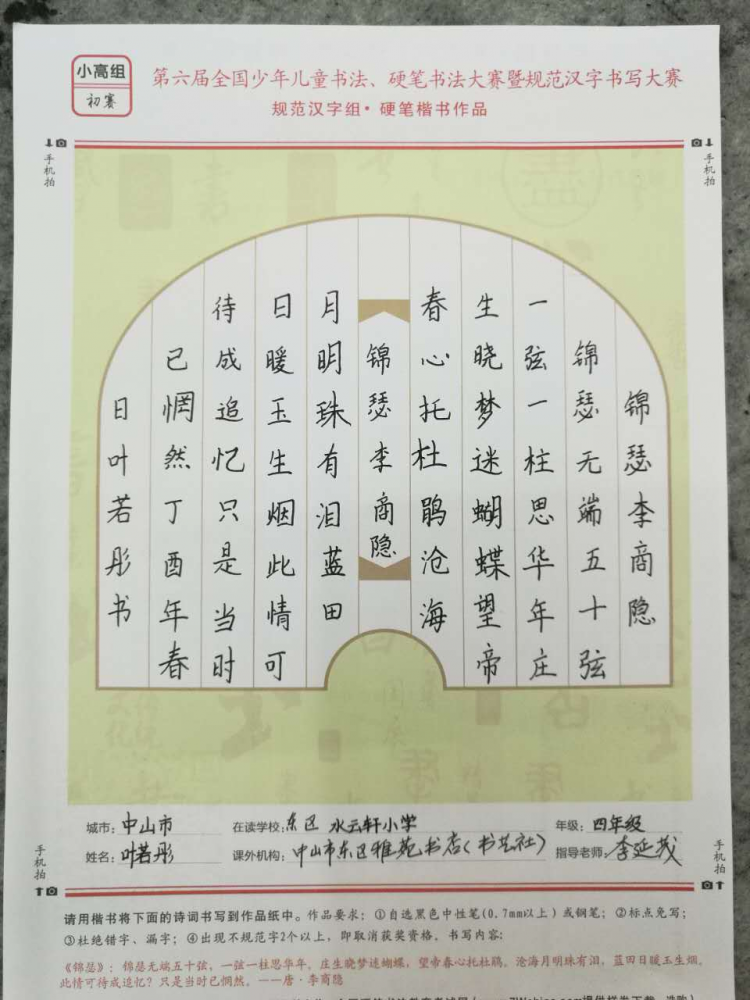 小高组
初赛
第六届全国少年儿童书法、硬笔书法大赛暨规范汉字书写大赛
规范汉字组·硬笔楷书作品
手机拍
手机拍
锦瑟李商隐
锦瑟无端五十弦
一弦一柱思华年庄
生晓梦迷蝴蝶望帝
春心托杜鹃沧海
锦瑟李商隐
月明珠有泪蓝田
日暖玉生烟此情可
待成追忆只是当时
已惘然丁酉年春
日叶若彤书
城市：中山市 在读学校：东区 水云轩小学 年级：四年级
姓名：叶若彤 课外机构：中山市东区雅苑书店（书艺社） 指导老师：李延茂
手机拍
手机拍
请用楷书将下面的诗词书写到作品纸中。作品要求：①自选黑色中性笔(0.7mm以上）或钢笔；②标点免写；
③杜绝错字、漏字；④出现不规范字2个以上，即取消获奖资格。书写内容：
《锦瑟》：锦瑟无端五十弦，一弦一柱思华年。庄生晓梦迷蝴蝶，望帝春心托杜鹃。沧海月明珠有泪，蓝田日暖玉生烟。
此情可待成追忆？只是当时已惘然。——唐·李商隐